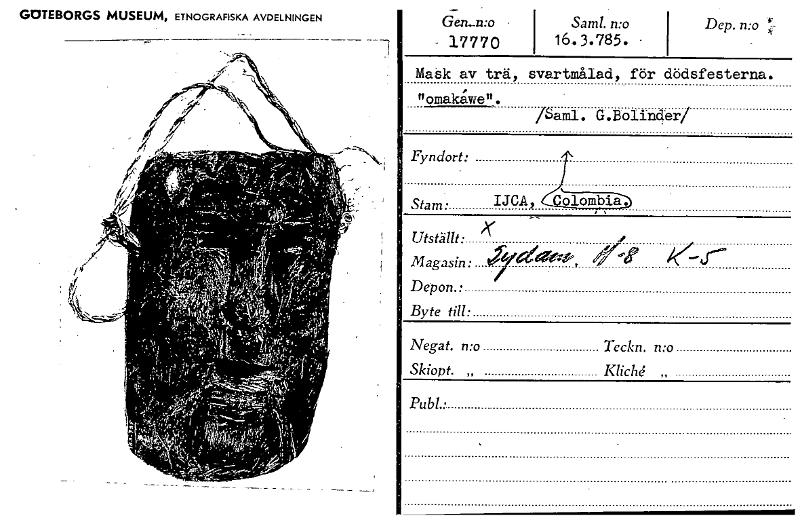 GÖTEBORGS MUSEUM, ETNOGRAFISKA AVDELNINGEN
Gen. n:o 17770
Saml. n:o 16.3.785.
Dep. n:o
Mask av trä, svartmålad, för dödsfesterna.
"omakáwe".
/Saml. G.Bolinder/
Fyndort:
Stam: IJCA, Colombia.
Utställt: X
Magasin: Sydam. H-8 K-5
Depon.:
Byte till:
Negat. n:o Teckn. n:o
Skiopt. „ Kliché „
Publ.: